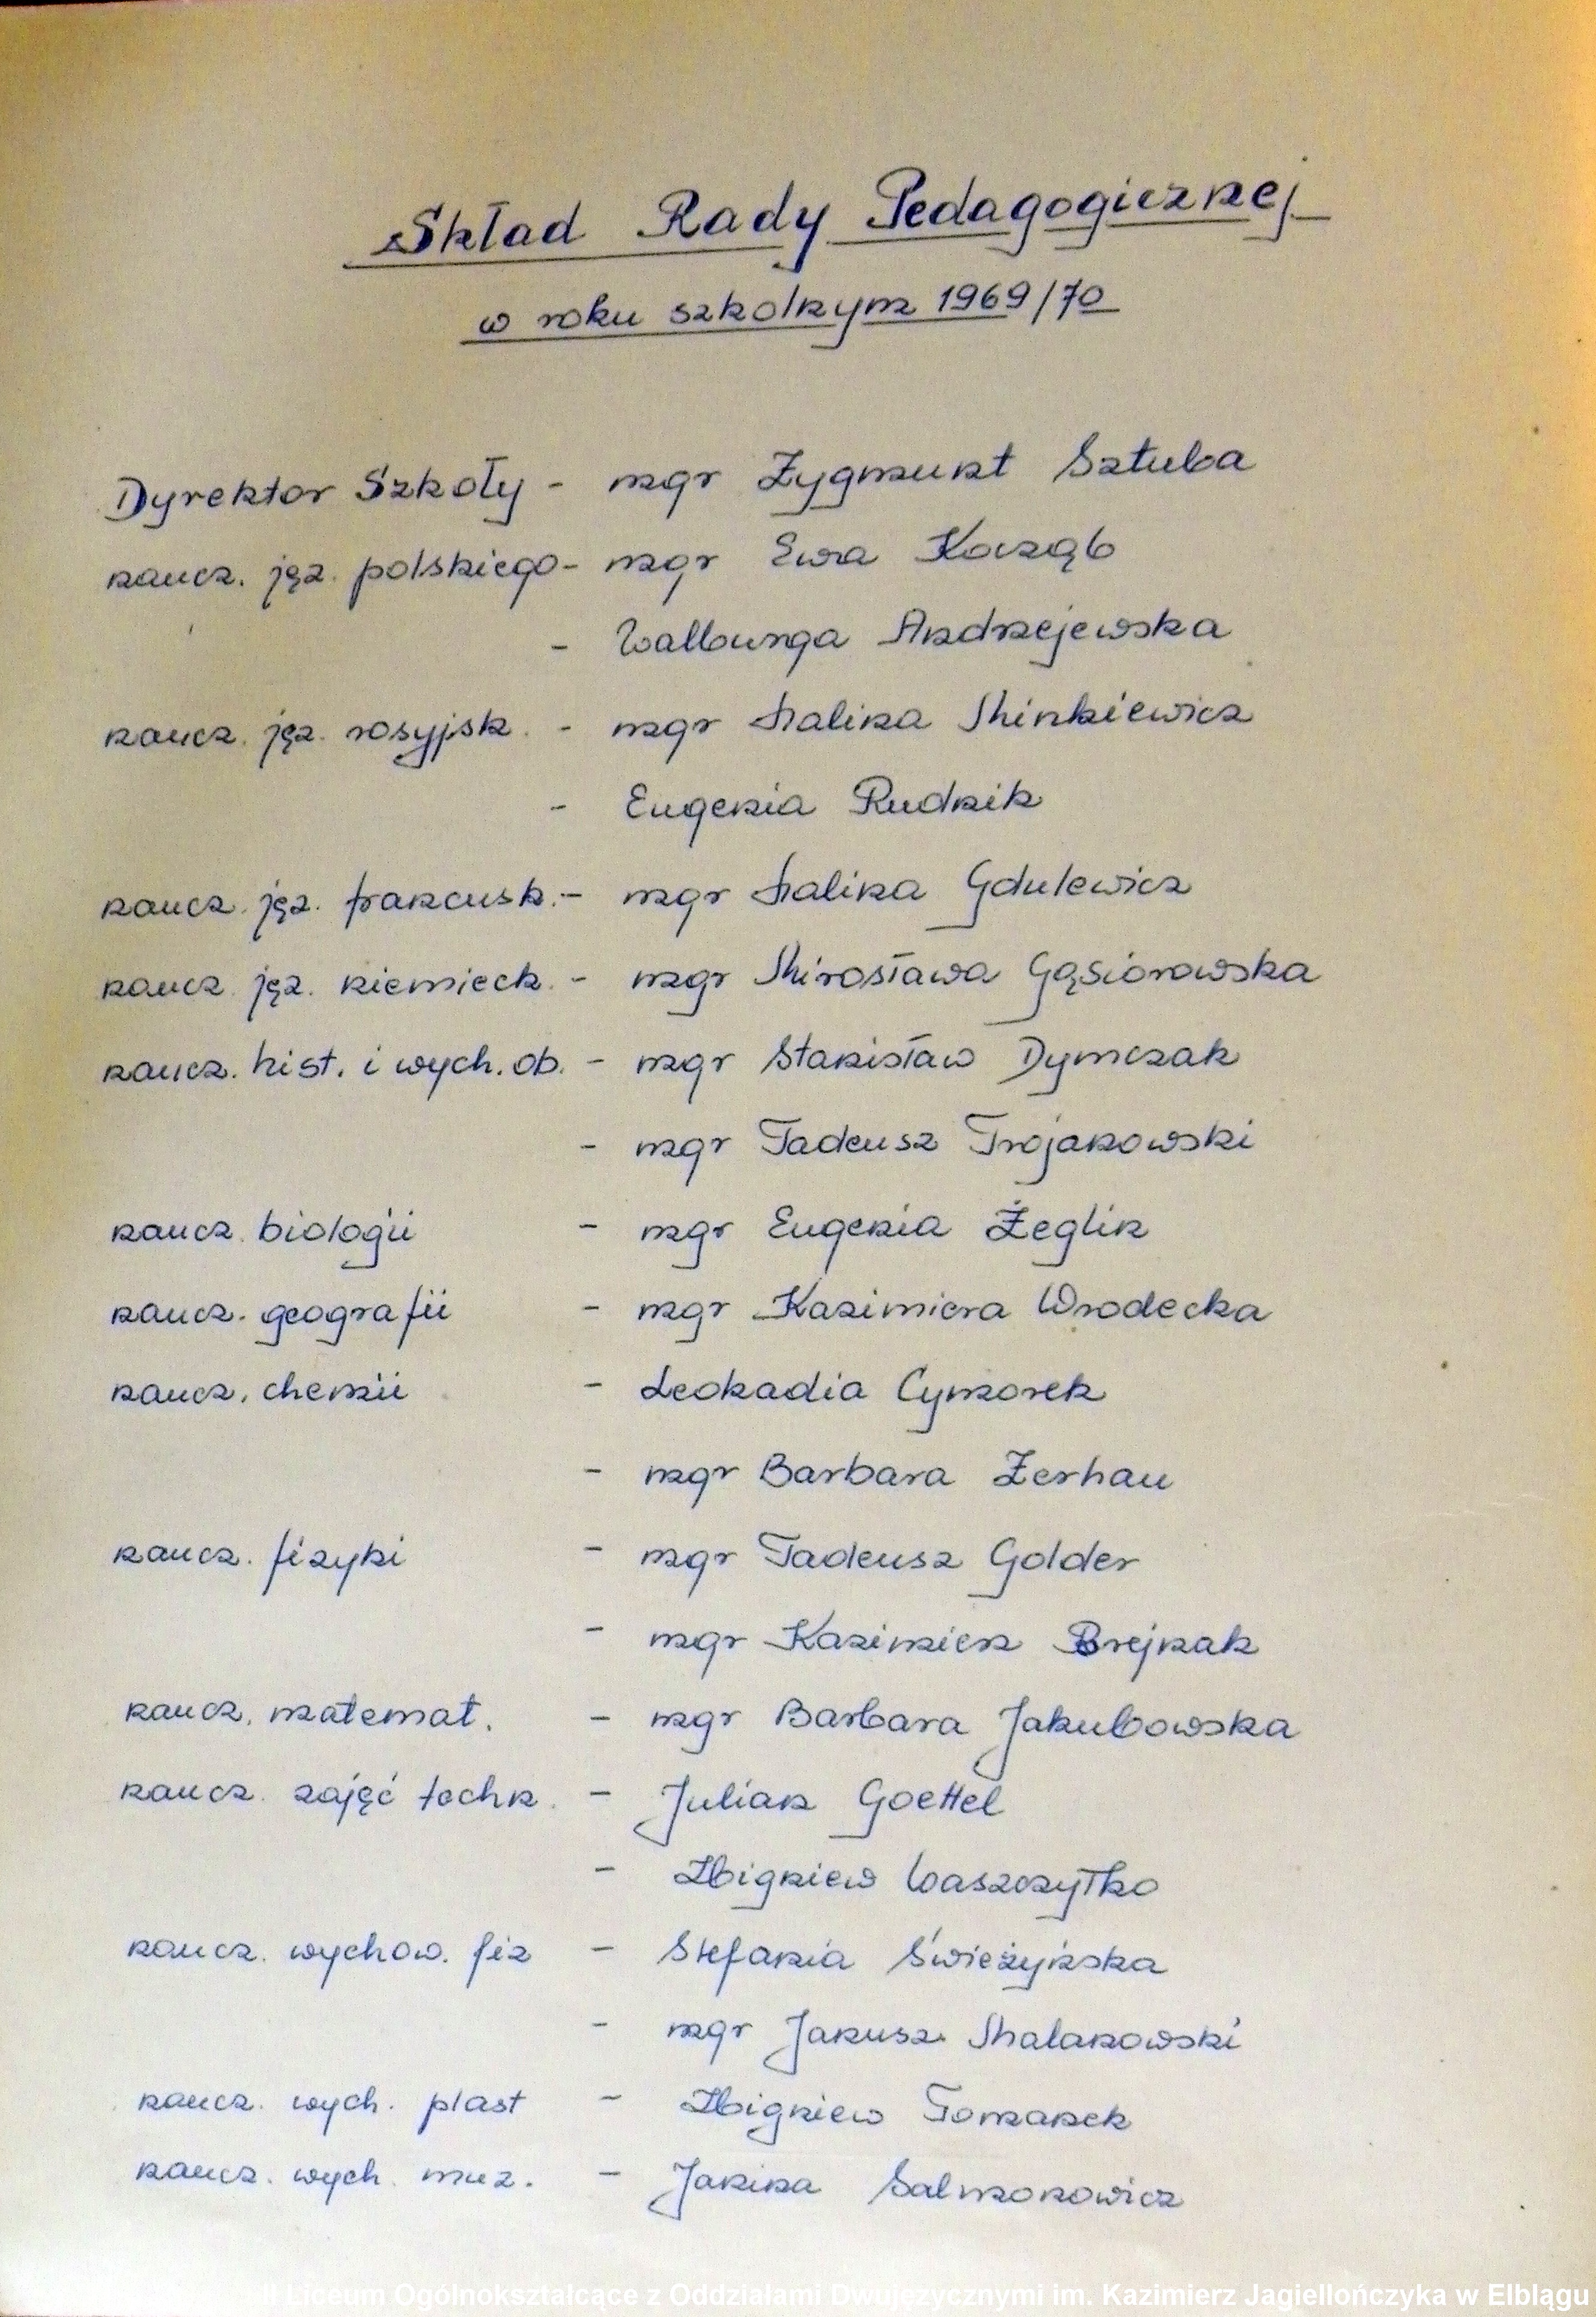 Skład Rady Pedagogicznej
w roku szkolnym 1969/70
Dyrektor Szkoły - mgr Zygmunt Sztuba
naucz. jęz. polskiego - mgr Ewa Kocząb
- Walburga Andrzejewska
naucz. jęz. rosyjsk. - mgr Halina Minkiewicz
- Eugenia Rudnik
naucz. jęz. francusk. - mgr Halina Gdulewicz
naucz. jęz. niemieck. - mgr Mirosława Gąsiorowska
naucz. hist. i wych. ob. - mgr Stanisław Dymczak
- mgr Tadeusz Trojanowski
naucz. biologii - mgr Eugenia Żeglin
naucz. geografii - mgr Kazimiera Wrodecka
naucz. chemii - Leokadia Cymorek
- mgr Barbara Zerhau
naucz. fizyki - mgr Tadeusz Golder
- mgr Kazimierz Brejnak
naucz. matemat. - mgr Barbara Jakubowska
naucz. zajęć techn. - Julian Goettel
- Zbigniew Waszczytko
naucz. wychow. fiz - Stefania Świeżyńska
- mgr Janusz Malanowski
naucz. wych. plast - Zbigniew Tomanek
naucz. wych. muz. - Janina Salmonowicz
II Liceum Ogólnokształcące z Oddziałami Dwujęzycznymi im. Kazimierz Jagiellończyka w Elblągu